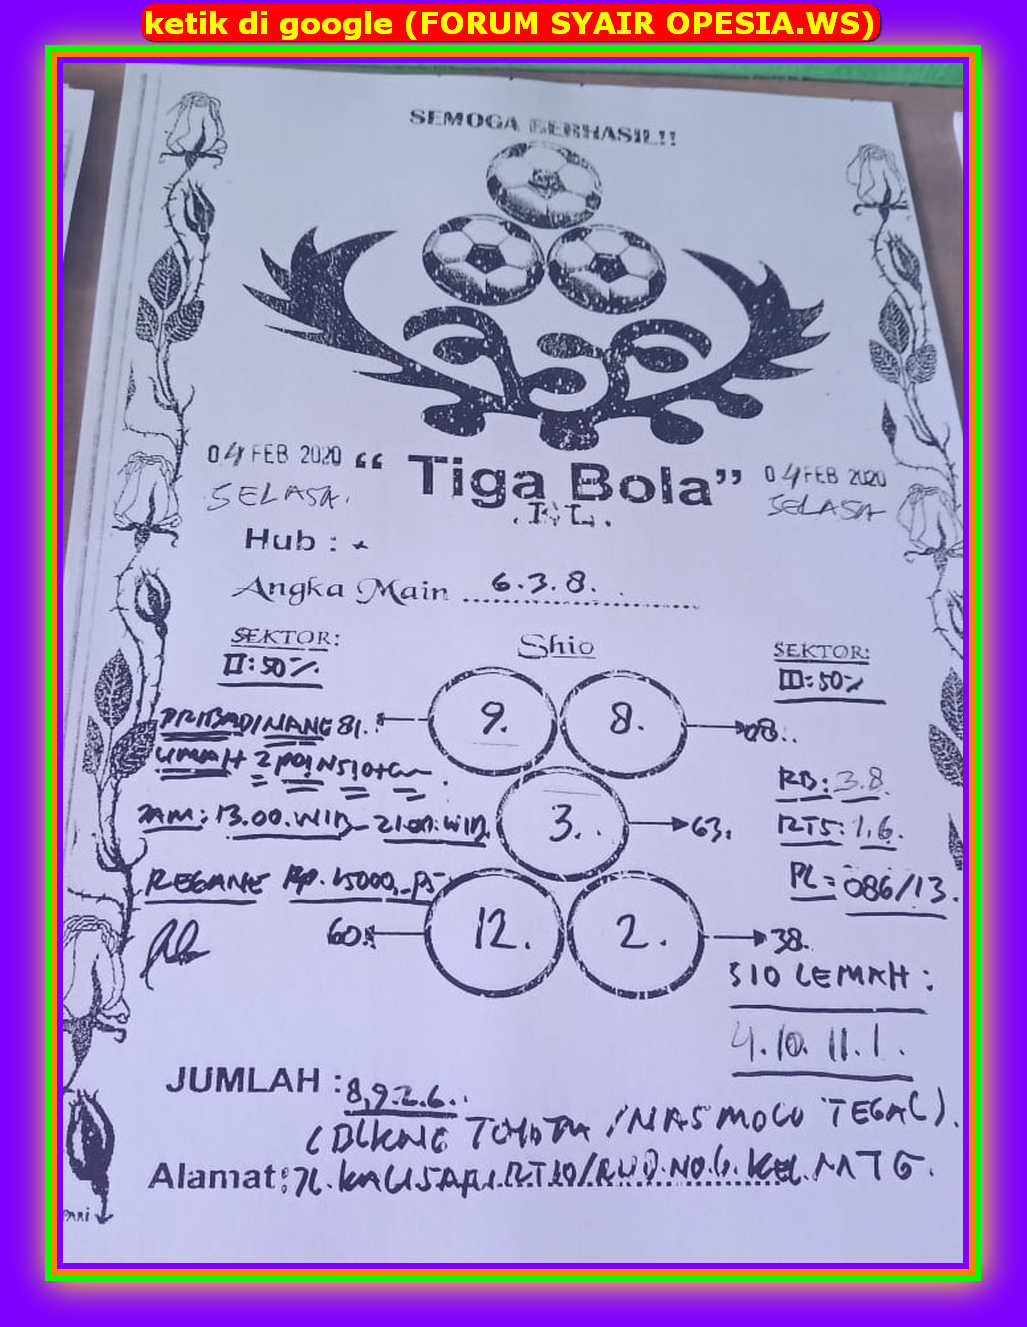 ketik di google (FORUM SYAIR OPESIA.WS)
SEMOGA BERHASIL!!
04 FEB 2020 “ Tiga Bola” 04 FEB 2020
SELASA. SELASA
Hub :
Angka Main 6.3.8.
SEKTOR: Shio SEKTOR:
II:50% III:50%
9. 8.
81. 08..
2
RB: 3.8.
JAM: 13.00.WIB - 21.00.WIB. 3.. 63.
RTS: 1.6.
REGANE RP. 15000,-
PL = 086/13.
60. 12. 2. 38.
SIO LEMAH :
4.10.11.1.
JUMLAH : 8,9.2.6..
TOYOTA /NASMOCO TEGAL).
Alamat: JL. KALISARI.RT10/ NO.6. KEL. MTG.